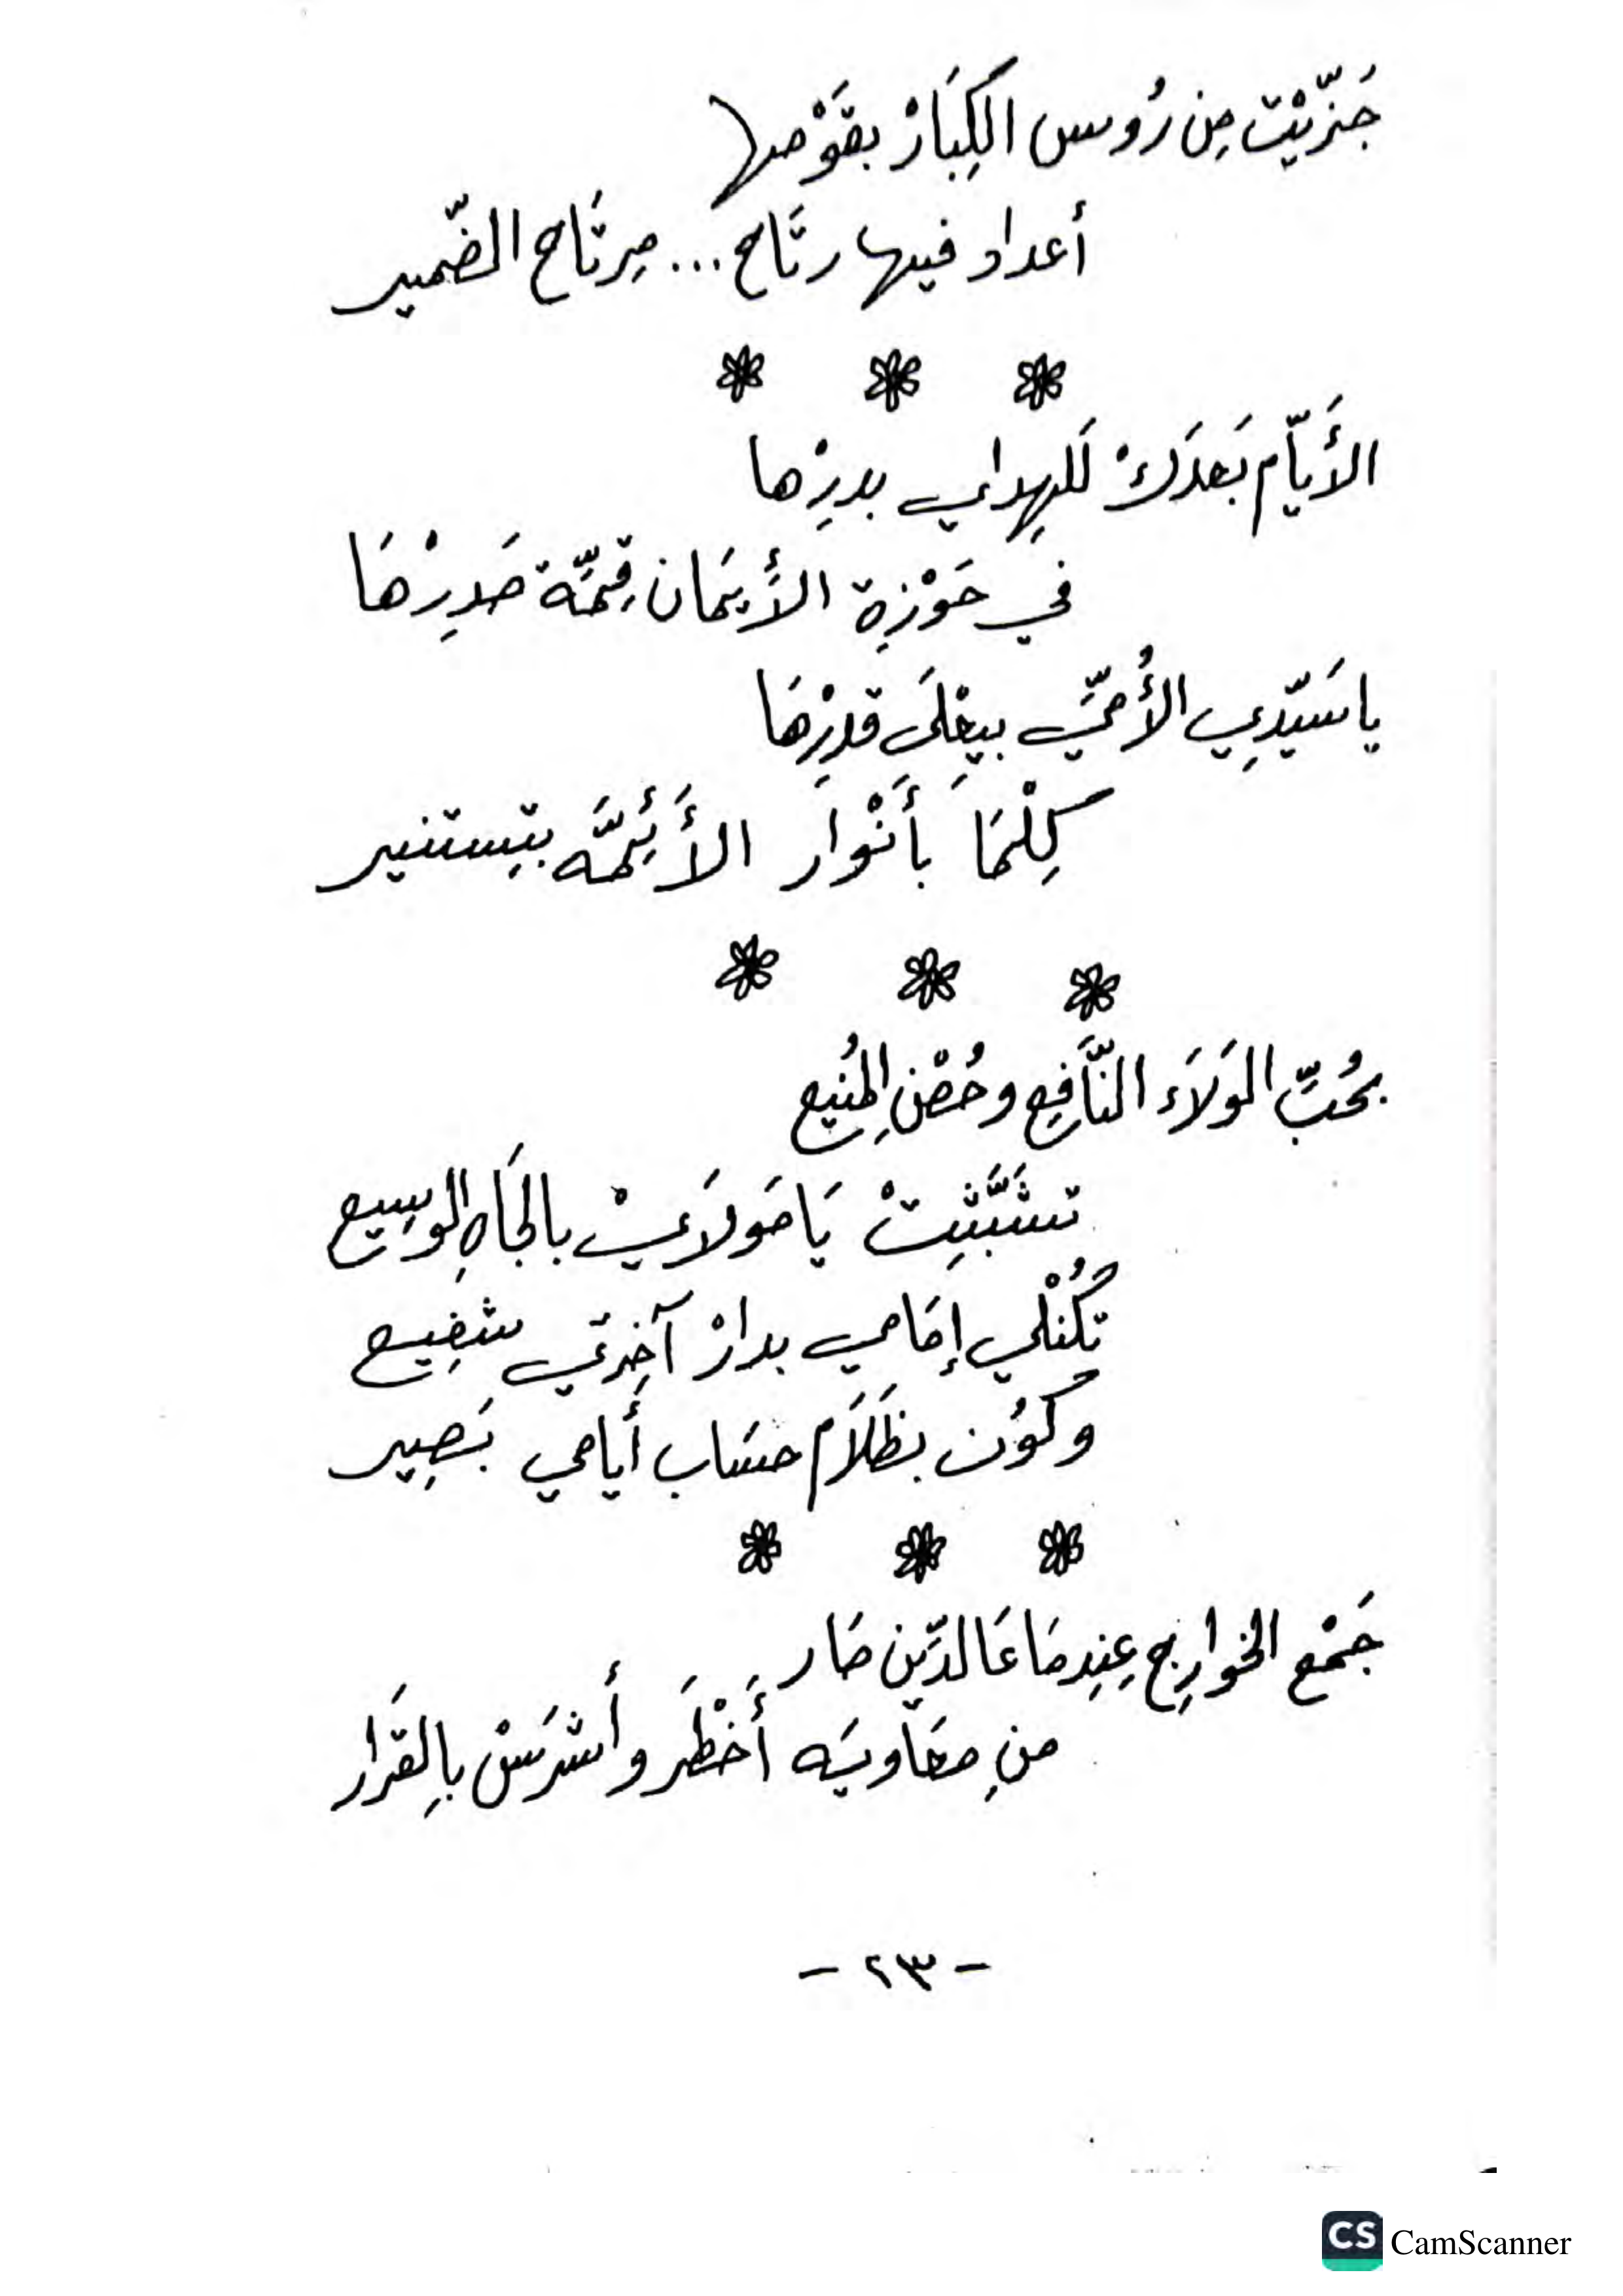 جَنزّيْت مِن رُوس الكِبَارْ بقَوْصها
أعداد فيها رتَاح... مِرتَاح الضّمير
الأَيّام بَعدَكْ لَلهِداي بدرِْها
في حَوْزِة الأَيمَان قِمَّة صَدِرْهَا
يا سَيّدِي الأُمّي بيِغْلَى قدِرْهَا
كِلْمَا بأَنْوار الأَئِمَّه بتِستنير
بحُبّ الوَلاَء النَّافِع وحُصْنِ المُنيع
تشَبَّثِتْ يَا مَولاَيْ بالجَاهِ الوسِيع
تكُنْلي إمَامي بدارْ آخِرتي شفِيع
وكُون بظَلاَم حسَاب أَيامي بَصِير
جَمْع الخوارِج عِندِمَا عَالدِّين صَار
منِ معَاويَه أَخْطَر وأَشرَسْ بالِقرَار
- ٢٣ -
CS CamScanner